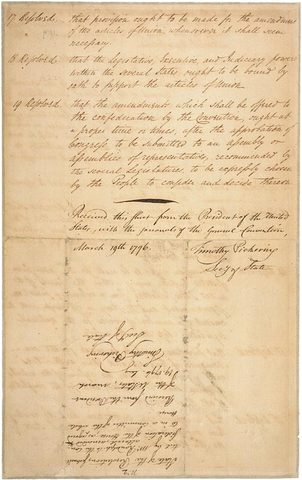 17 Resolved. that provision ought to be made for the amendment
of the articles of Union, whensoever it shall seem
necessary.
18 Resolved. that the Legislative, Executive, and Judiciary powers
within the several States ought to be bound by
oath to support the articles of Union
19 Resolved. that the amendments which shall be offered to
the confederation by the Convention, ought at
a proper time or times, after the approbation of
Congress to be submitted to an assembly or
assemblies of representatives, recommended by
the several Legislatures, to be expressly chosen
by the People to consider and decide thereon
Received this sheet from the President of the United
States, with the journals of the General Convention,
March 19th 1796.
Timothy Pickering
Secy of State
State of the Resolutions
by Mr. Randolph to the
in a Committee of the whole
House
Received from the President
of the United States, March
19. 1796. by
Timothy Pickering
Secy of State